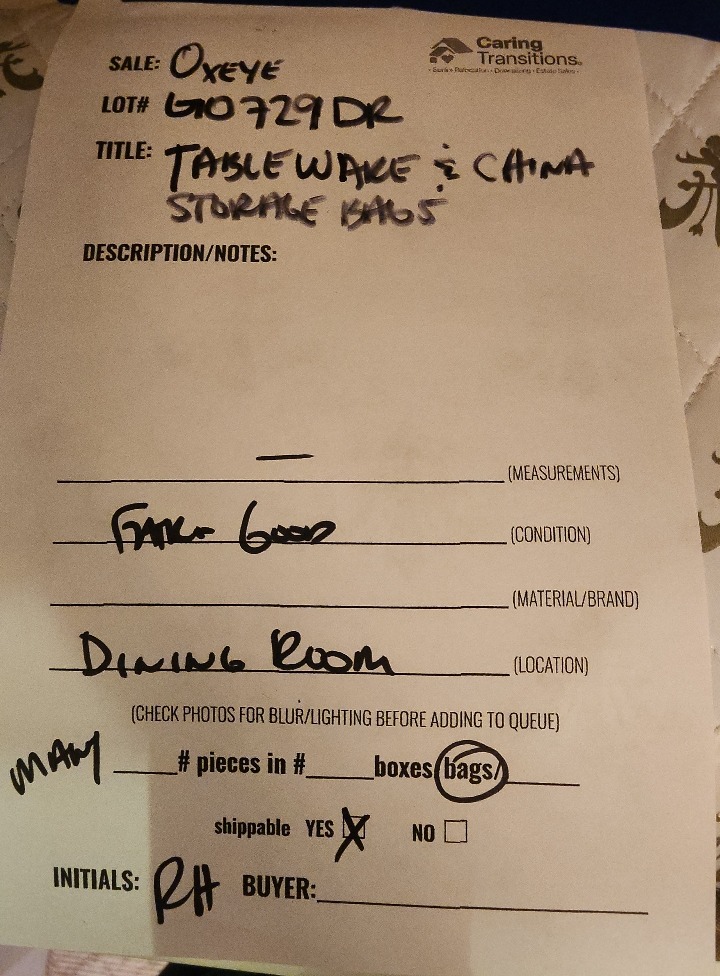 Caring
Transitions®
Senior Relocation • Downsizing • Estate Sales
SALE: OXEYE
LOT# GO729DR
TITLE: TABLEWARE & CHINA
STORAGE BAGS
DESCRIPTION/NOTES:
— (MEASUREMENTS)
FAIR - GOOD (CONDITION)
(MATERIAL/BRAND)
DINING ROOM (LOCATION)
(CHECK PHOTOS FOR BLUR/LIGHTING BEFORE ADDING TO QUEUE)
MANY ____# pieces in #____boxes/bags/____
shippable YES X NO
INITIALS: RH BUYER: